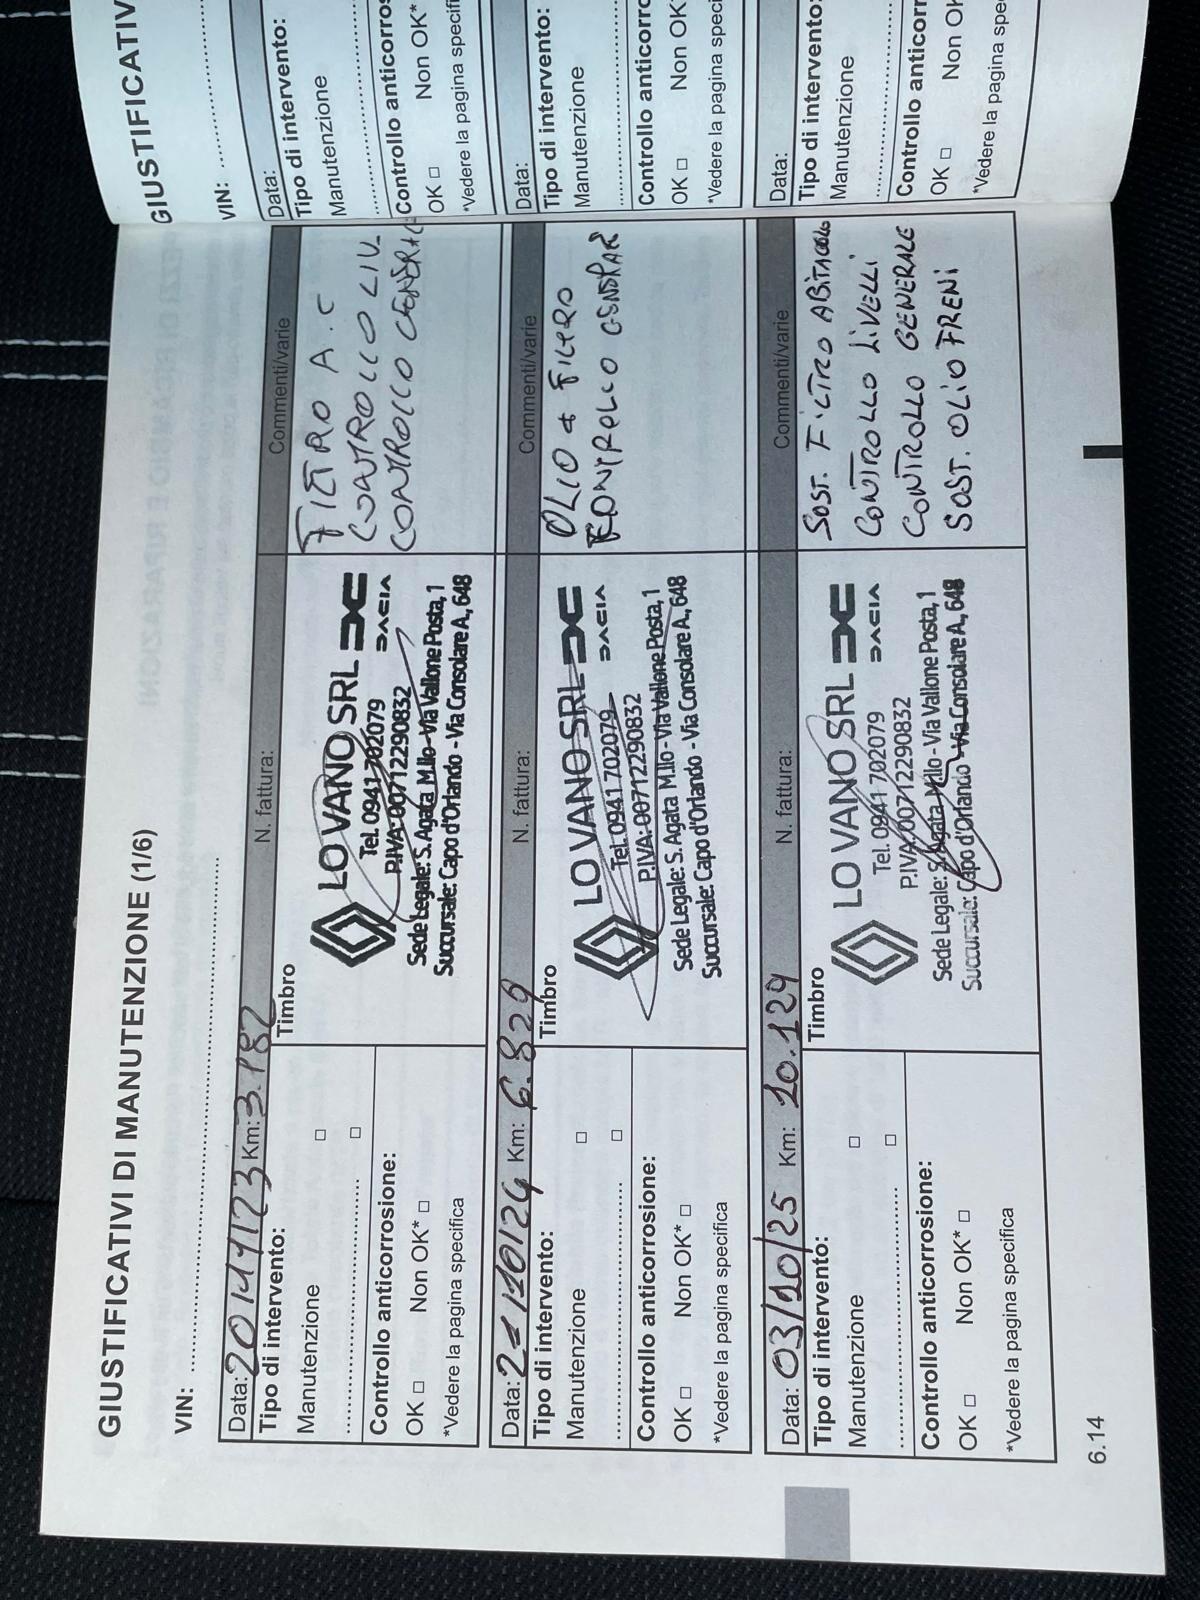 GIUSTIFICATIVI DI MANUTENZIONE (1/6)
VIN:
Data: 20/11/23 Km: 3.182 N. fattura: Commenti/varie
Tipo di intervento:
Manutenzione
Controllo anticorrosione:
OK Non OK*
*Vedere la pagina specifica
Timbro
LO VANO SRL
Tel. 0941 702079 DACIA
P.IVA: 00712290832
Sede Legale: S. Agata M.llo - Via Vallone Posta, 1
Succursale: Capo d'Orlando - Via Consolare A., 648
FILTRO A.C
CONTROLLO LIV.
CONTROLLO GENERALE
Data: /10/24 Km: 6.829 N. fattura: Commenti/varie
Tipo di intervento:
Manutenzione
Controllo anticorrosione:
OK Non OK*
*Vedere la pagina specifica
Timbro
LO VANO SRL
Tel. 0941 702079 DACIA
P.IVA: 00712290832
Sede Legale: S. Agata M.llo - Via Vallone Posta, 1
Succursale: Capo d'Orlando - Via Consolare A., 648
OLIO + FILTRO
CONTROLLO
Data: 03/10/25 Km: 10.129 N. fattura: Commenti/varie
Tipo di intervento:
Manutenzione
Controllo anticorrosione:
OK Non OK*
*Vedere la pagina specifica
Timbro
LO VANO SRL
Tel. 0941 702079 DACIA
P.IVA: 00712290832
Sede Legale: S. Agata M.llo - Via Vallone Posta, 1
Succursale: Capo d'Orlando - Via Consolare A., 648
SOST. FILTRO ABITACOLO
CONTROLLO LIVELLI
CONTROLLO GENERALE
SOST. OLIO FRENI
6.14
GIUSTIFICATIV
VIN:
Data:
Tipo di intervento:
Manutenzione
Controllo anticorros
OK Non OK*
*Vedere la pagina specifi
Data:
Tipo di intervento:
Manutenzione
Controllo anticorro
OK Non OK*
*Vedere la pagina speci
Data:
Tipo di intervento:
Manutenzione
Controllo anticorr
OK Non OK
*Vedere la pagina spec